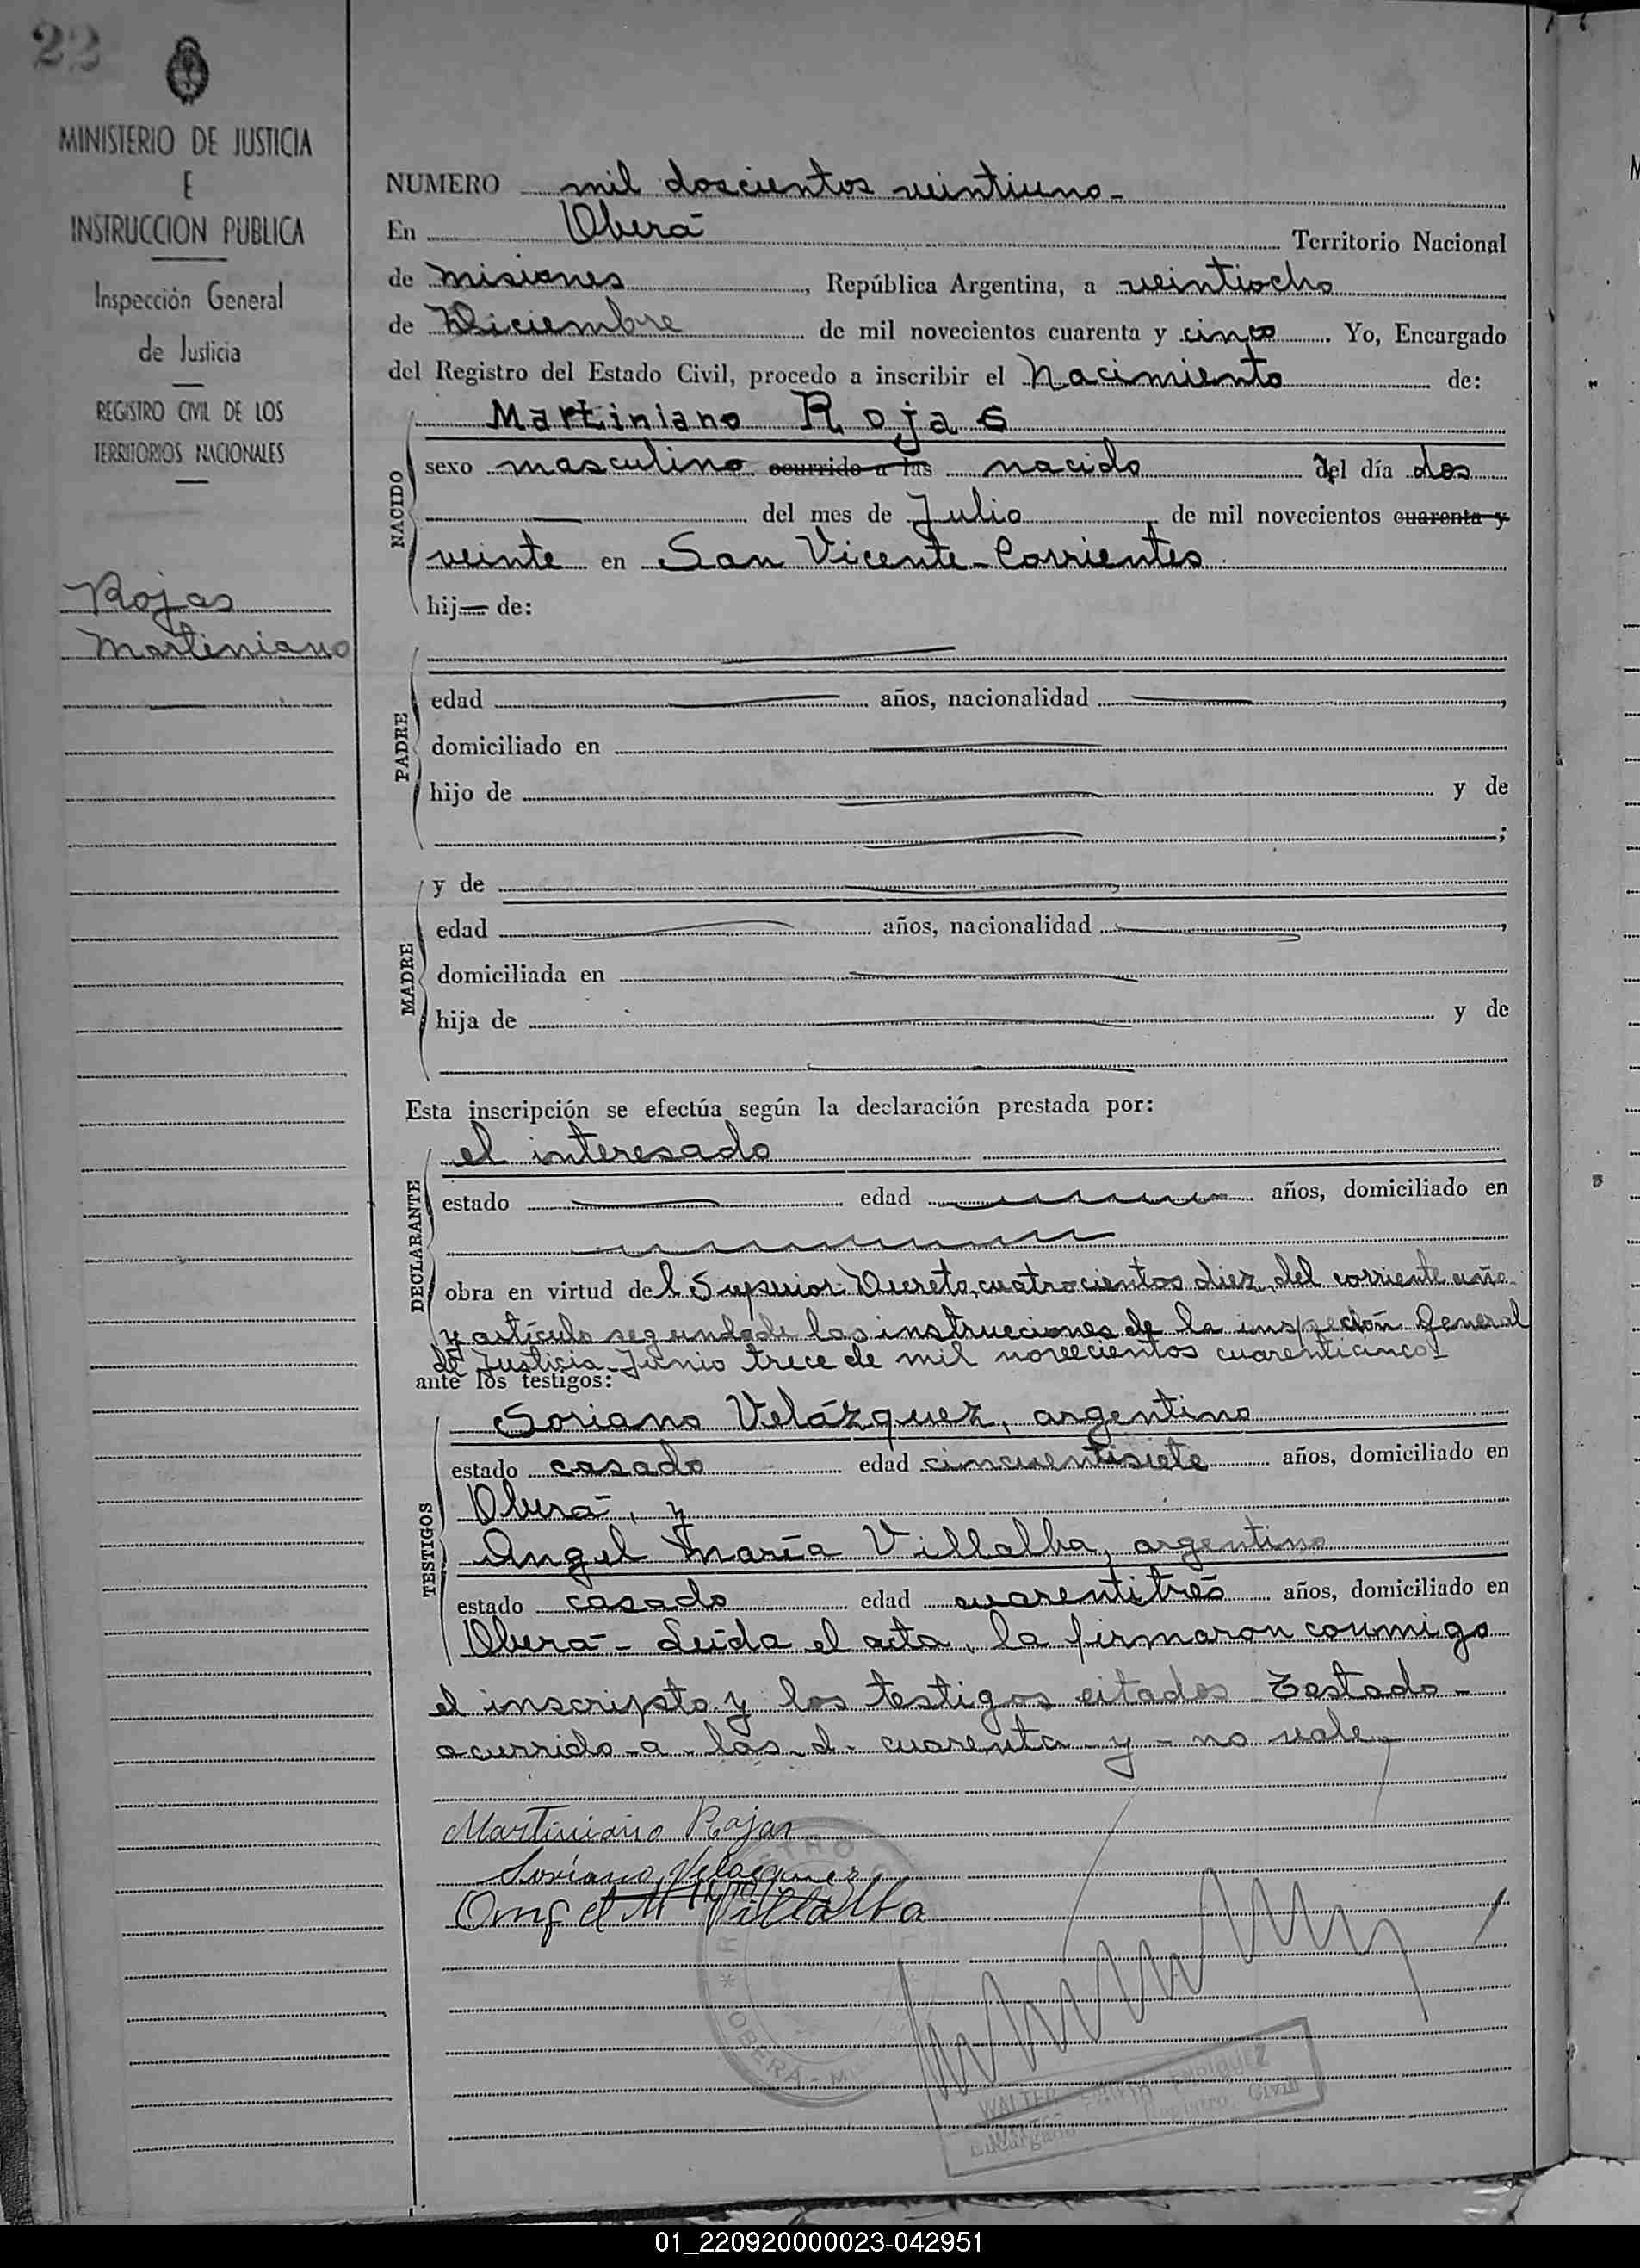 22
MINISTERIO DE JUSTICIA
E
INSTRUCCION PUBLICA
Inspección General
de Justicia
REGISTRO CIVIL DE LOS
TERRITORIOS NACIONALES
Rojas
Martiniano
NUMERO mil doscientos veintiuno-
En Oberá Territorio Nacional
de Misiones, República Argentina, a veintiocho
de Diciembre de mil novecientos cuarenta y cinco. Yo, Encargado
del Registro del Estado Civil, procedo a inscribir el Nacimiento de:
Martiniano Rojas
NACIDO
sexo masculino ocurrido a las nacido del día dos
del mes de Julio de mil novecientos cuarenta y
veinte en San Vicente-Corrientes
hij de:
PADRE
edad años, nacionalidad
domiciliado en
hijo de y de
;
MADRE
y de
edad años, nacionalidad
domiciliada en
hija de y de
Esta inscripción se efectúa según la declaración prestada por:
el interesado
DECLARANTE
estado edad años, domiciliado en
obra en virtud del Superior Decreto, cuatrocientos diez, del corriente año
y artículo segundo de las instrucciones de la inspección General
de Justicia-Junio trece de mil novecientos cuarenticinco-
ante los testigos:
TESTIGOS
Soriano Velázquez, argentino
estado casado edad cincuentisiete años, domiciliado en
Oberá, y
Angel María Villalba, argentino
estado casado edad cuarentitrés años, domiciliado en
Oberá- Leída el acta, la firmaron conmigo
el inscripto y los testigos citados Testado-
ocurrido-a-las-d-cuarenta-y-no vale,
Martiniano Rojas
Soriano Velazquez
Angel M Villalba
OBERÁ
WALTER ENRIQUEZ
Encargado Registro Civil
01_220920000023-042951